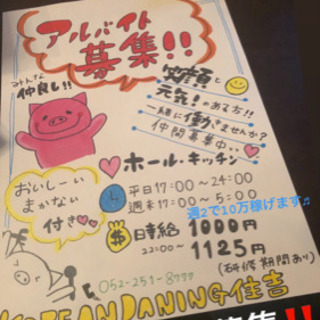 アルバイト
募集!!
みんな
仲良し!!
笑顔と
元気!のある方!!
一緒に働きませんか?
仲間募集中
ホール・キッチン
おいしーい
まかない
付き
平日17:00〜24:00
週末17:00〜5:00
週2で10万稼げます♫
日時給 1000円
22:00〜 1125円
(研修期間あり)
052-251-8999
KOREAN DANING 住吉
募集!!